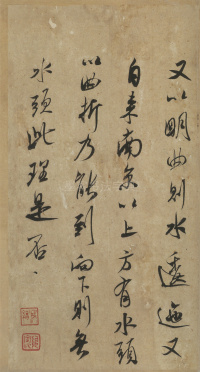 又以明曲則水透迤又
自来南京以上方有水頭
以曲折乃能到向下則無
水頭此理是否